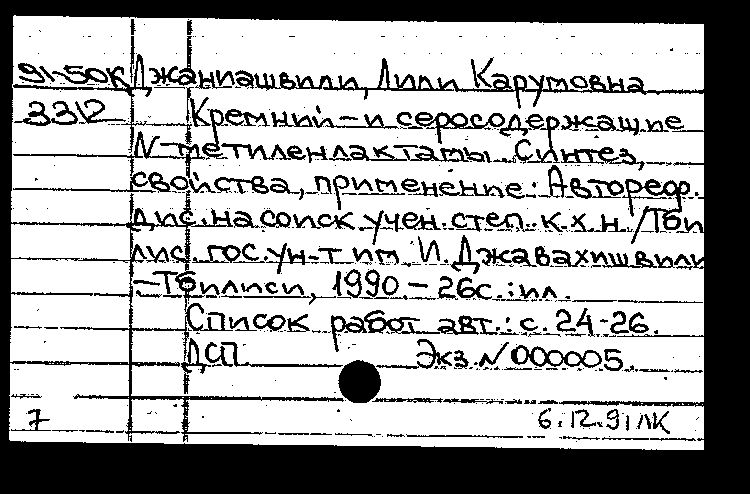 91-50К Джаниашвили, Лили Карумовна
3312 Кремний- и серосодержащие
N-метиленлактамы. Синтез,
свойства, применение: Автореф.
дис. на соиск. учен. степ. к.х.н. /Тби
лис. гос. ун-т им. И. Джавахишвили
-Тбилиси, 1990.- 26с.: ил.
Список работ авт.: с. 24-26.
ДСП Экз. N 000005.
7 6.12.91 ЛК